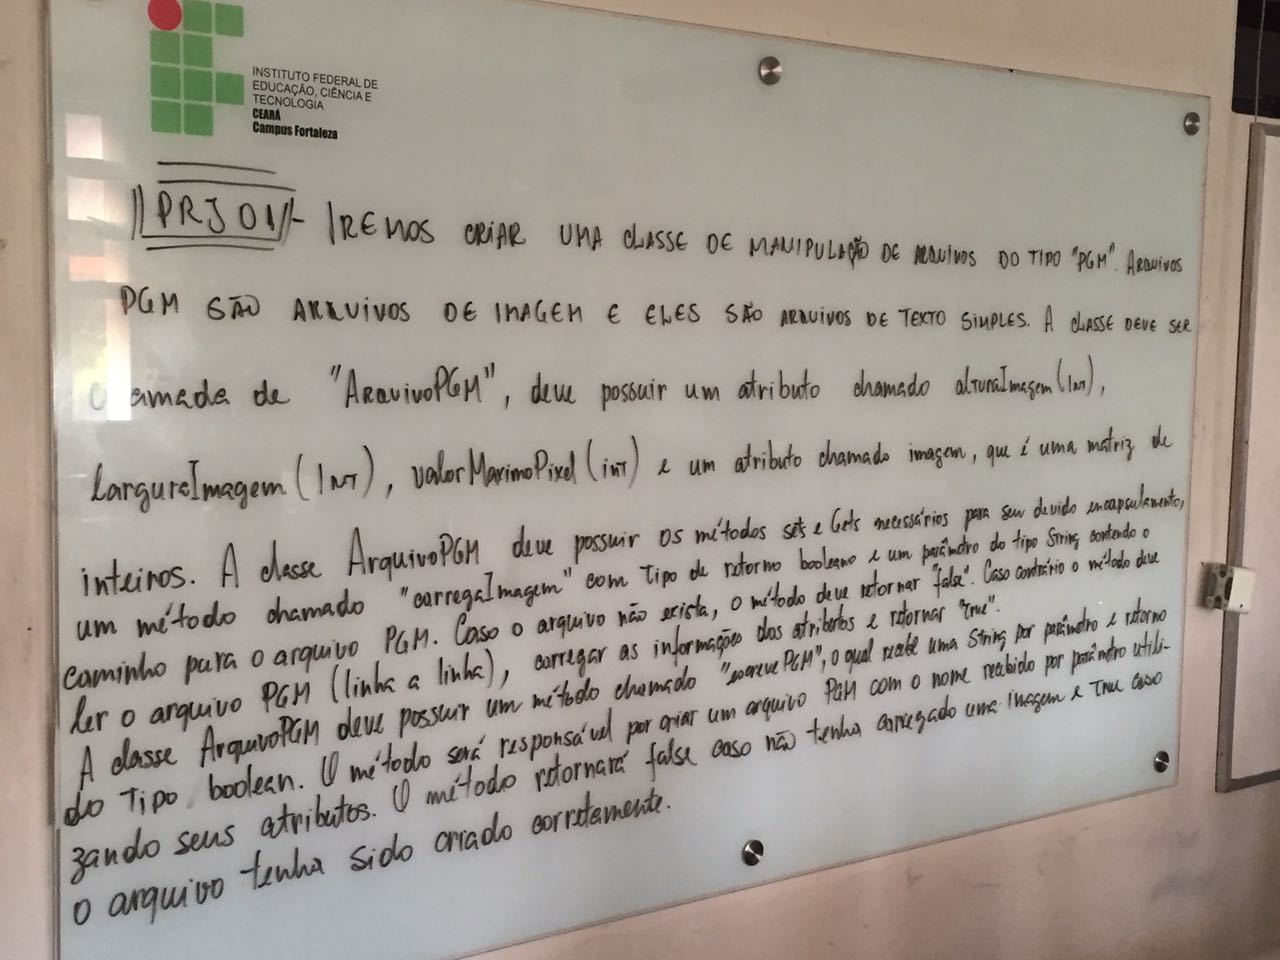 INSTITUTO FEDERAL DE
EDUCAÇÃO, CIÊNCIA E
TECNOLOGIA
CEARÁ
Campus Fortaleza
PRJ01 - IREMOS CRIAR UMA CLASSE DE MANIPULAÇÃO DE ARQUIVOS DO TIPO "PGM". ARQUIVOS
PGM SÃO ARQUIVOS DE IMAGEM E ELES SÃO ARQUIVOS DE TEXTO SIMPLES. A CLASSE DEVE SER
chamada de "ArquivoPGM", deve possuir um atributo chamado alturaImagem (Int),
larguraImagem (Int), valorMaximoPixel (int) e um atributo chamado imagem, que é uma matriz de
inteiros. A classe ArquivoPGM deve possuir os métodos sets e Gets necessários para seu devido encapsulamento,
um método chamado "carregaImagem" com Tipo de retorno booleano e um parâmetro do tipo String contendo o
caminho para o arquivo PGM. Caso o arquivo não exista, o método deve retornar "false". Caso contrário o método deve
ler o arquivo PGM (linha a linha), carregar as informações dos atributos e retornar "true".
A classe ArquivoPGM deve possuir um método chamado "escrevePGM", o qual recebe uma String por parâmetro e retorno
do Tipo boolean. O método será responsável por criar um arquivo PGM com o nome recebido por parâmetro utili-
zando seus atributos. O método retornará false caso não tenha carregado uma imagem e True caso
o arquivo tenha sido criado corretamente.